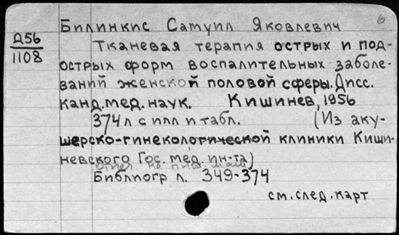 6
Билинкис Самуил Яковлевич
Д56
1108
Тканевая терапия острых и под-
острых форм воспалительных заболе-
ваний женской половой сферы. Дисс.
канд. мед. наук. Кишинев, 1956
374 л с илл и табл. (Из аку-
шерско-гинекологической клиники Киши-
невского Гос. мед. ин-та)
Библиогр л. 349-374
см. след. карт